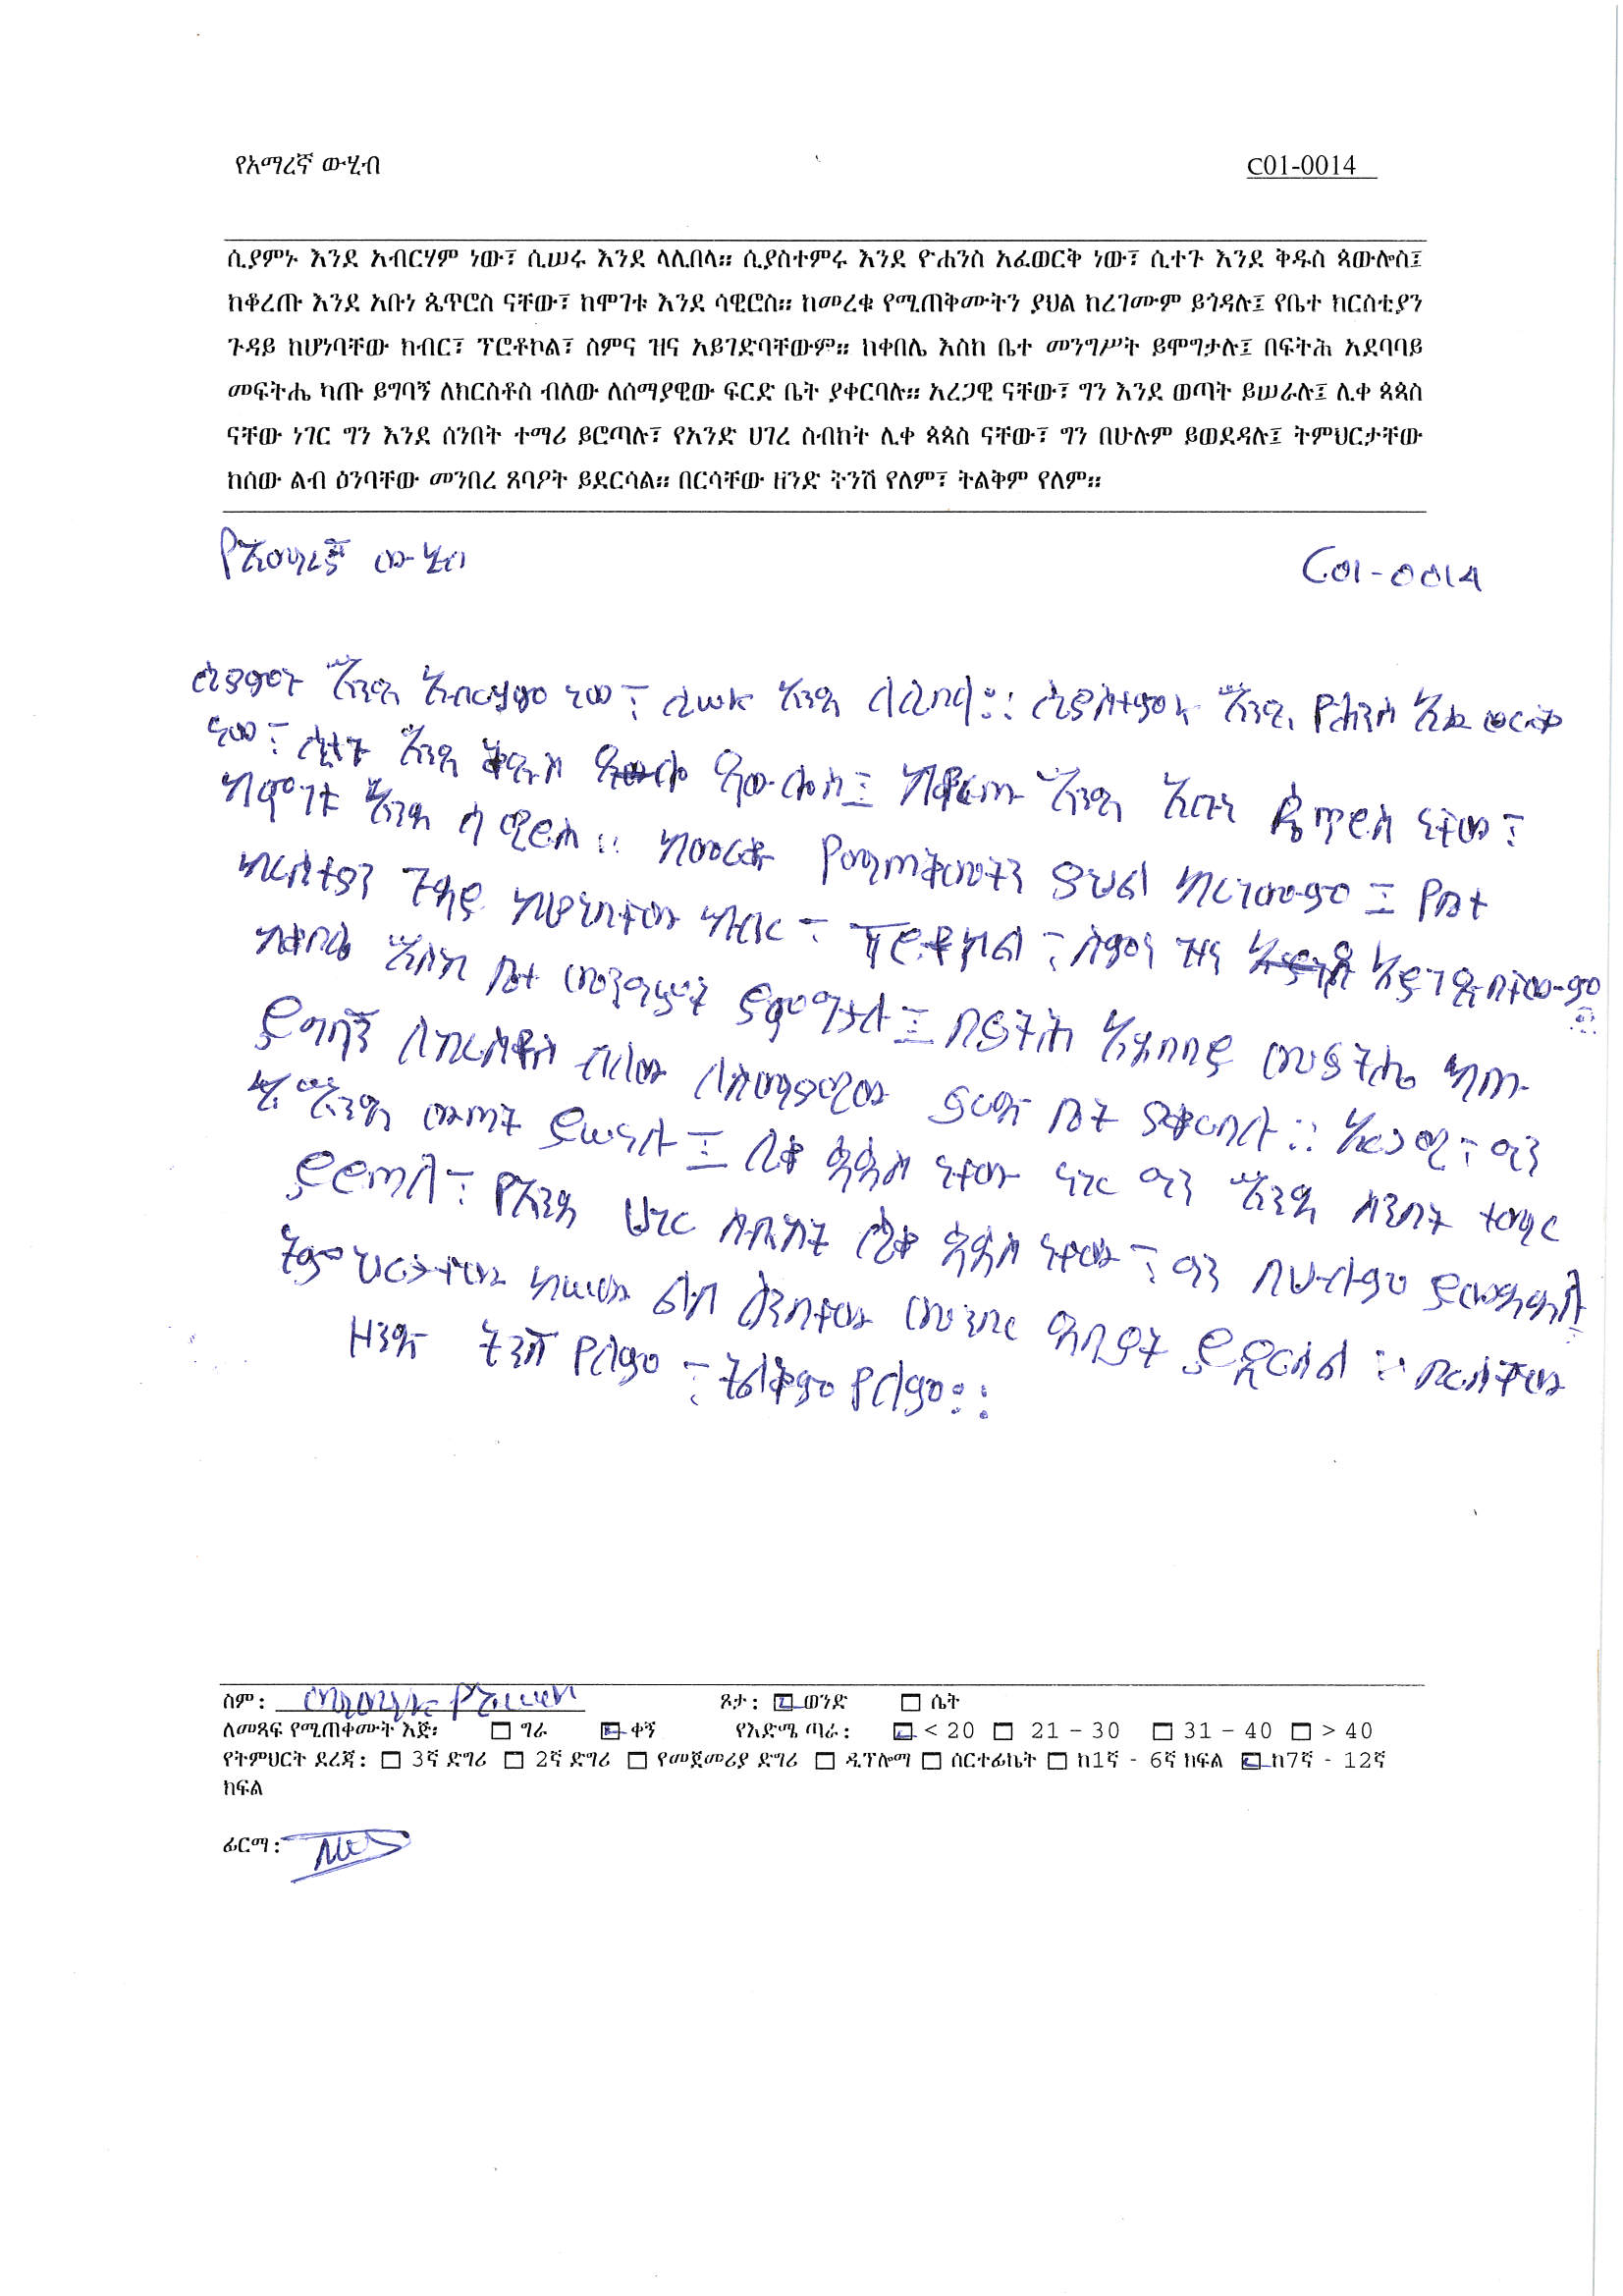 የአማረኛ ውሂብ C01-0014
ሲያምኑ እንደ አብርሃም ነው፣ ሲሠሩ እንደ ላሊበላ። ሲያስተምሩ እንደ ዮሐንስ አፈወርቅ ነው፣ ሲተጉ እንደ ቅዱስ ጳውሎስ፤
ከቆረጡ እንደ አቡነ ጴጥሮስ ናቸው፣ ከሞገቱ እንደ ሳዊሮስ። ከመረቁ የሚጠቅሙትን ያህል ከረገሙም ይጎዳሉ፤ የቤተ ክርስቲያን
ጉዳይ ከሆነባቸው ክብር፣ ፕሮቶኮል፣ ስምና ዝና አይገድባቸውም። ከቀበሌ እስከ ቤተ መንግሥት ይሞግታሉ፤ በፍትሕ አደባባይ
መፍትሔ ካጡ ይግባኝ ለክርስቶስ ብለው ለሰማያዊው ፍርድ ቤት ያቀርባሉ። አረጋዊ ናቸው፣ ግን እንደ ወጣት ይሠራሉ፤ ሊቀ ጳጳስ
ናቸው ነገር ግን እንደ ሰንበት ተማሪ ይሮጣሉ፣ የአንድ ሀገረ ስብከት ሊቀ ጳጳስ ናቸው፣ ግን በሁሉም ይወደዳሉ፤ ትምህርታቸው
ከሰው ልብ ዕንባቸው መንበረ ጸባዖት ይደርሳል። በርሳቸው ዘንድ ትንሽ የለም፣ ትልቅም የለም።
የአማረኛ ውሂብ C01-0014
ሲያምኑ እንደ አብርሃም ነው፣ ሲሠሩ እንደ ላሊበላ። ሲያስተምሩ እንደ ዮሐንስ አፈ ወርቅ
ነው፣ ሲተጉ እንደ ቅዱስ ጳውሎስ፤ ከቆረጡ እንደ አቡነ ጴጥሮስ ናቸው፣
ከሞገቱ እንደ ሳዊሮስ። ከመረቁ የሚጠቅሙትን ያህል ከረገሙም፤ የቤተ
ክርስቲያን ጉዳይ ከሆነባቸው ክብር፣ ፕሮቶኮል፣ ስምና ዝና አይገድባቸውም።
ከቀበሌ እስከ ቤተ መንግሥት ይሞግታሉ፤ በፍትሕ አደባባይ መፍትሔ ካጡ
ይግባኝ ለክርስቶስ ብለው ለሰማያዊው ፍርድ ቤት ያቀርባሉ። አረጋዊ፣ ግን
እንደ ወጣት ይሠራሉ፤ ሊቀ ጳጳስ ናቸው ነገር ግን እንደ ሰንበት ተማሪ
ይሮጣሉ፣ የአንድ ሀገረ ስብከት ሊቀ ጳጳስ ናቸው፣ ግን በሁሉም ይወደዳሉ፤
ትምህርታቸው ከሠው ልብ ዕንባቸው መንበረ ጸባዖት ይደርሳል። በርሳቸው
ዘንድ ትንሽ የለም፣ ትልቅም የለም።
ስም: ጾታ: ወንድ ሴት
ለመጻፍ የሚጠቀሙት እጅ፡ ግራ ቀኝ የእድሜ ጣራ: < 20 21 – 30 31 – 40 > 40
የትምህርት ደረጃ: 3ኛ ድግሪ 2ኛ ድግሪ የመጀመሪያ ድግሪ ዲፕሎማ ሰርተፊኬት ከ1ኛ - 6ኛ ክፍል ከ7ኛ - 12ኛ
ክፍል
ፊርማ: